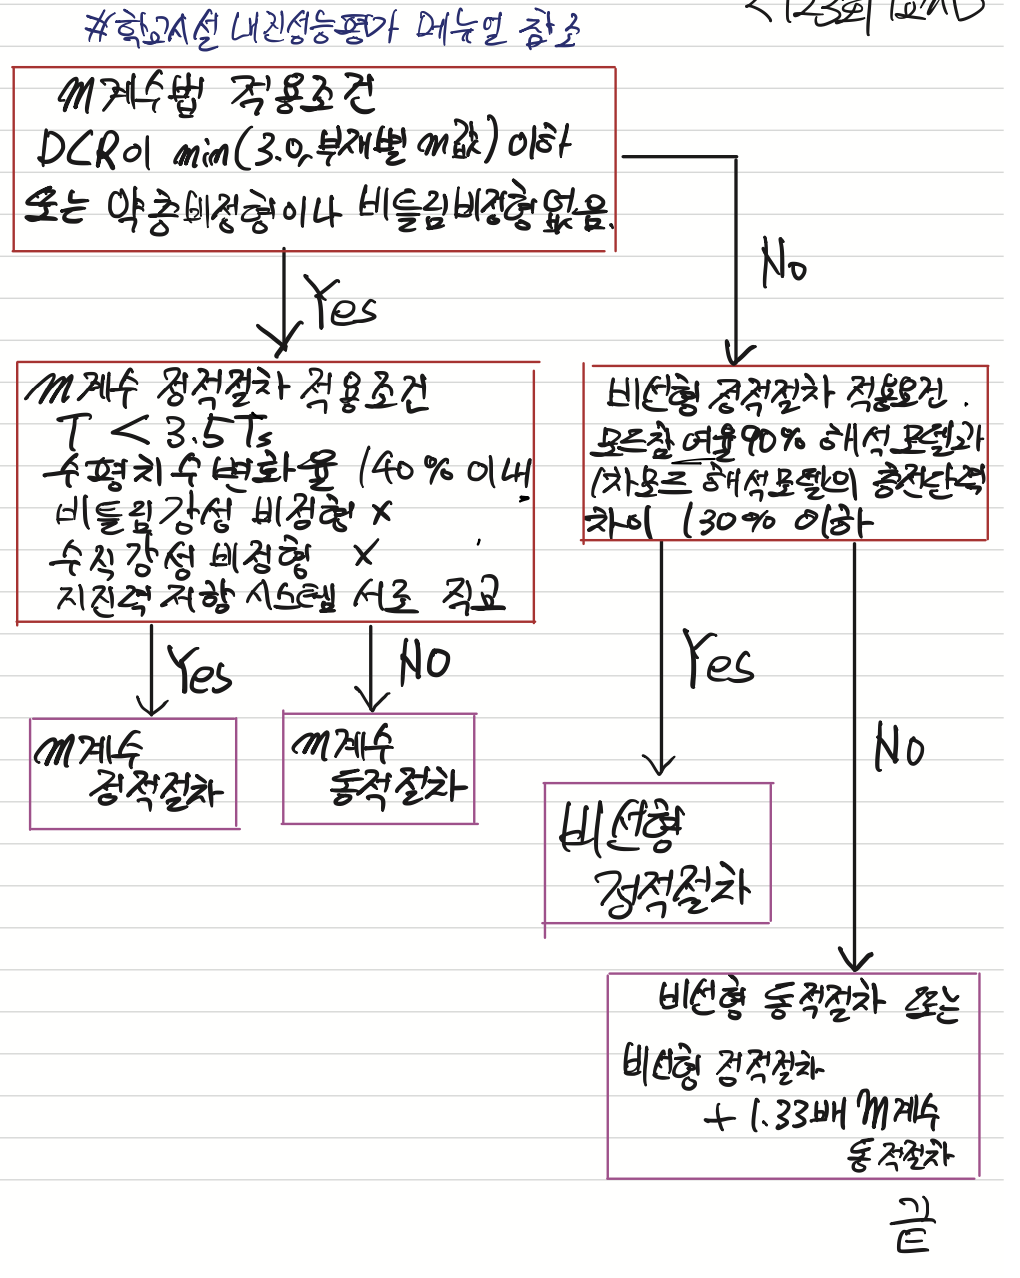 #학교시설 내진성능평가 메뉴얼 참조
m계수법 적용조건
DCR이 min(3.0, 부재별 m값) 이하
또는 약층비정형이나 비틀림비정형 없음.
Yes
No
m계수 정적절차 적용조건
T < 3.5Ts
수평치수 변화율 140% 이내
비틀림강성 비정형 x
수직강성 비정형 x
지진력 저항 시스템 서로 직교
비선형 정적절차 적용요건.
모드참여율90% 해석모델과
1차모드 해석모델의 층전단력
차이 130% 이하
Yes
No
Yes
No
m계수
정적절차
m계수
동적절차
비선형
정적절차
비선형 동적절차 또는
비선형 정적절차
+ 1.33배 m계수
동적절차
끝